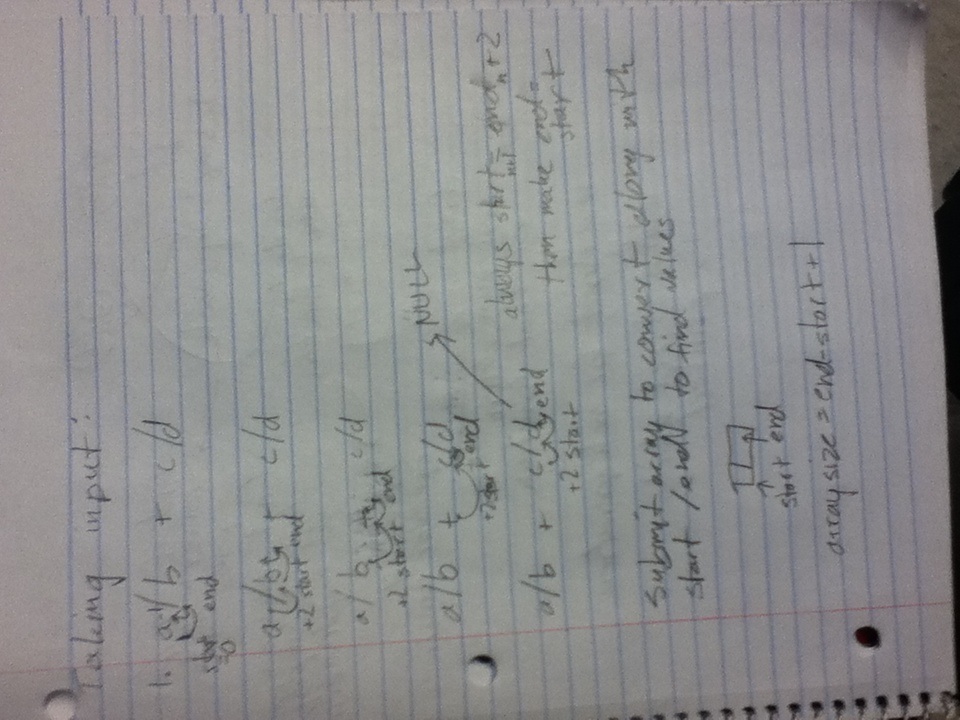 Taking input:
1. a/b + c/d
start end
=0
a/b + c/d
+2 start end
a/b + c/d
+2 start end
a/b + c/d
NULL
+2 start end
always start n+1 = end n +2
a/b + c/d end
then make end=
start
+2 start
Submit array to convert along with
start/end to find values
start end
array size = end-start+1